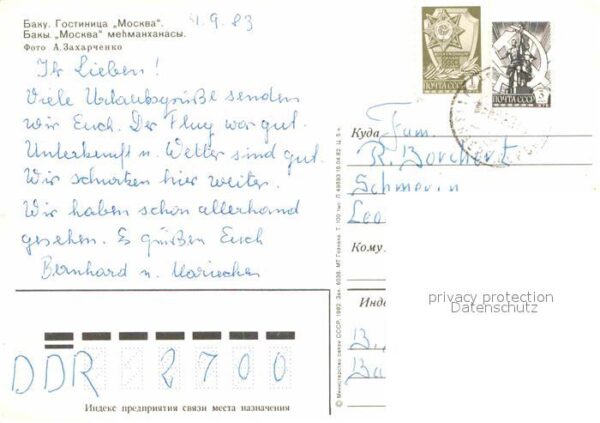 Баку. Гостиница „Москва“.
Бакы. „Москва“ меһманханасы.
Фото А. Захарченко
4.9.83
Ihr Lieben!
Viele Urlaubsgrüße senden
wir Euch. Der Flug war gut.
Unterkunft u. Wetter sind gut.
Wir schwitzen hier weiter.
Wir haben schon allerhand
gesehen. Es grüßen Euch
Bernhard u. Mariechen
DDR 2700
Индекс предприятия связи места назначения
© Министерство связи СССР, 1982. Зак. 6038. МТ Гознака. Т. 100 тыс. 19.04.82. Ц. 5 к.
ПОЧТА СССР 1
ПОЧТА СССР 3
Куда Fam.
R. Borchert
Schwerin
Leo
Кому
Инде
privacy protection
Datenschutz
B.
Ba